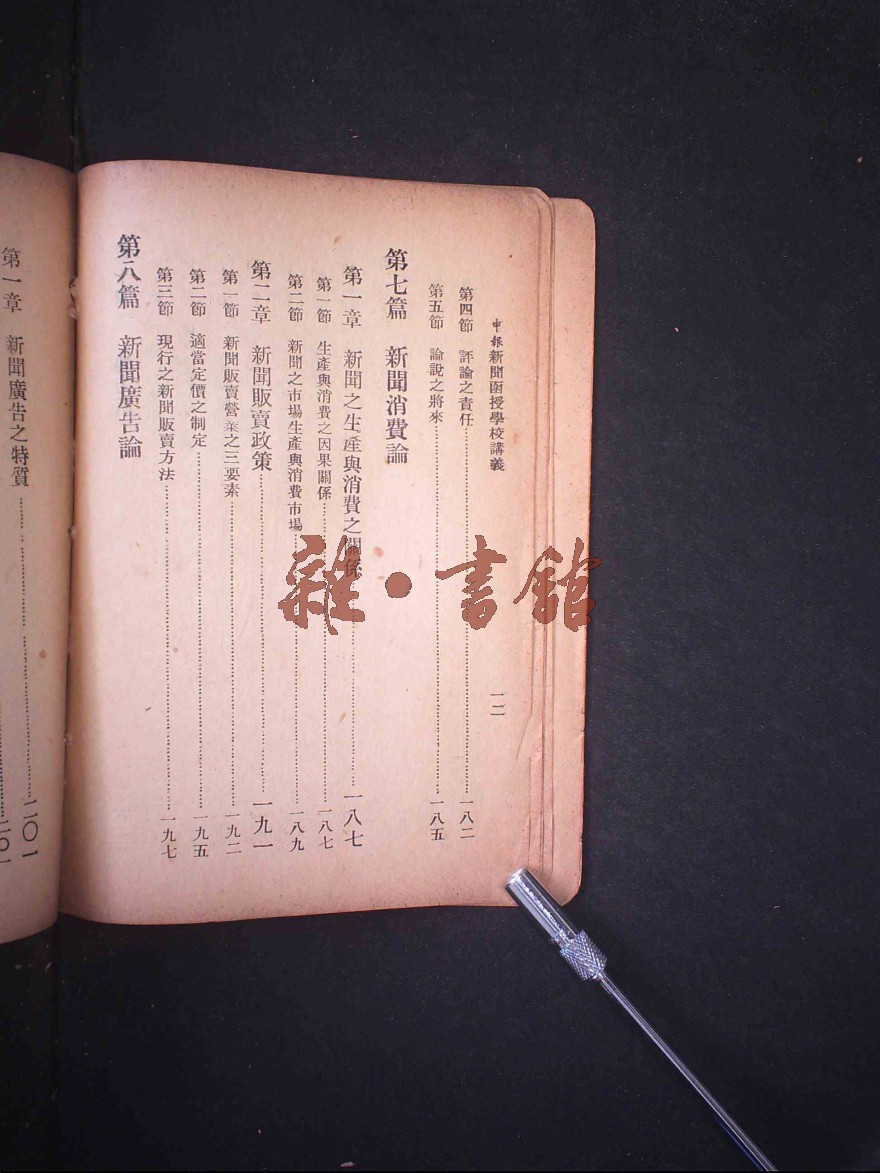 申報新聞函授學校講義
一二
第四節 評論之責任……一八二
第五節 論說之將來……一八五
第七篇 新聞消費論
第一章 新聞之生產與消費之關係……一八七
第一節 生產與消費之因果關係……一八七
第二節 新聞之市場生產與消費市場……一八九
第二章 新聞販賣政策……一九一
第一節 新聞販賣營業之三要素……一九二
第二節 適當定價之制定……一九五
第三節 現行之新聞販賣方法……一九七
第八篇 新聞廣告論
第一章 新聞廣告之特質……二〇一
二〇一
雜·書館